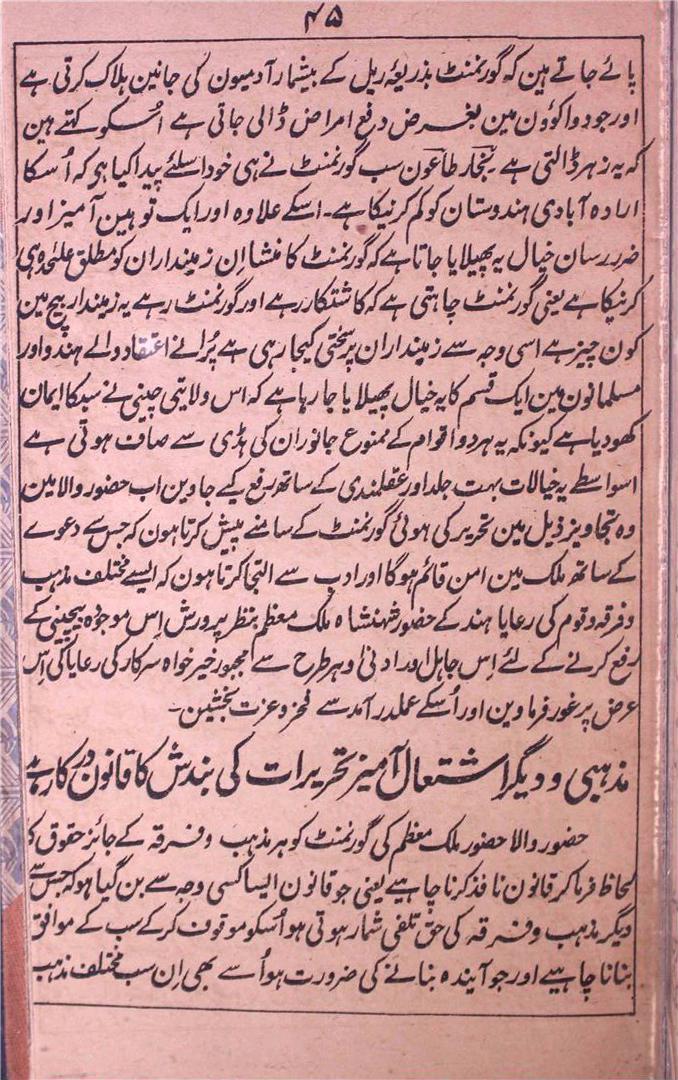 ۴۵
پائے جاتے ہین کہ گورنمنٹ بذریعۂ ریل کے بیشمار آدمیون کی جانین ہلاک کرتی ہے
اور جو دوا کوؤن مین بغرض دفع امراض ڈالی جاتی ہے اُسکو کہتے ہین
کہ یہ زہر ڈالتی ہے بخار طاعون سب گورنمنٹ نے ہی خود اسلئے پیدا کیا ہی کہ اُسکا
ارادہ آبادی ہندوستان کو کم کرنیکا ہے۔ اسکے علاوہ اور ایک توہین آمیز اور
ضرر رسان خیال یہ پھیلایا جاتا ہے کہ گورنمنٹ کا منشا اِن زمینداران کو مطلق علٰحدہ ہی
کرنیکا ہے یعنی گورنمنٹ چاہتی ہے کہ کاشتکار رہے اور گورنمنٹ رہے یہ زمیندار بیچ مین
کون چیز ہے اسی وجہ سے زمینداران پر سختی کیجا رہی ہے پُرانے اعتقاد والے ہندو اور
مسلمانون مین ایک قسم کا یہ خیال پھیلایا جا رہا ہے کہ اس ولایتی چینی نے سبکا ایمان
کھو دیا ہے کیونکہ یہ ہر دو اقوام کے ممنوع جانوران کی ہڈی سے صاف ہوتی ہے
اسواسطے یہ خیالات بہت جلد اور عقلمندی کے ساتھ رفع کیے جاوین اب حضور والا مین
وہ تجاویز ذیل مین تحریر کی ہوئی گورنمنٹ کے سامنے پیش کرتا ہون کہ جس سے دعوے
کے ساتھ ملک مین امن قائم ہوگا اور ادب سے التجا کرتا ہون کہ ایسے مختلف مذہب
و فرقہ و قوم کی رعایا ہند کے حضور شہنشاہ ملک معظم بنظر پرورش اِس موجودہ بیچینی کے
رفع کرنے کے لئے اِس جاہل اور ادنیٰ و ہر طرح سے مجبور خیر خواہ سرکار کی رعایا کی اِس
عرض پر غور فرماوین اور اُسکے عملدرآمد سے فخر و عزت بخشین۔
مذہبی و دیگر اشتعال آمیز تحریرات کی بندش کا قانون درکار ہے
حضور والا حضور ملک معظم کی گورنمنٹ کو ہر مذہب و فرقہ کے جائز حقوق کا
لحاظ فرما کر قانون نافذ کرنا چاہیے یعنی جو قانون ایسا کسی وجہ سے بن گیا ہو کہ جس سے
دیگر مذہب و فرقہ کی حق تلفی شمار ہوتی ہو اُسکو موقوف کرکے سب کے موافق
بنانا چاہیے اور جو آیندہ بنانے کی ضرورت ہو اُسے بھی اِن سب مختلف مذہب